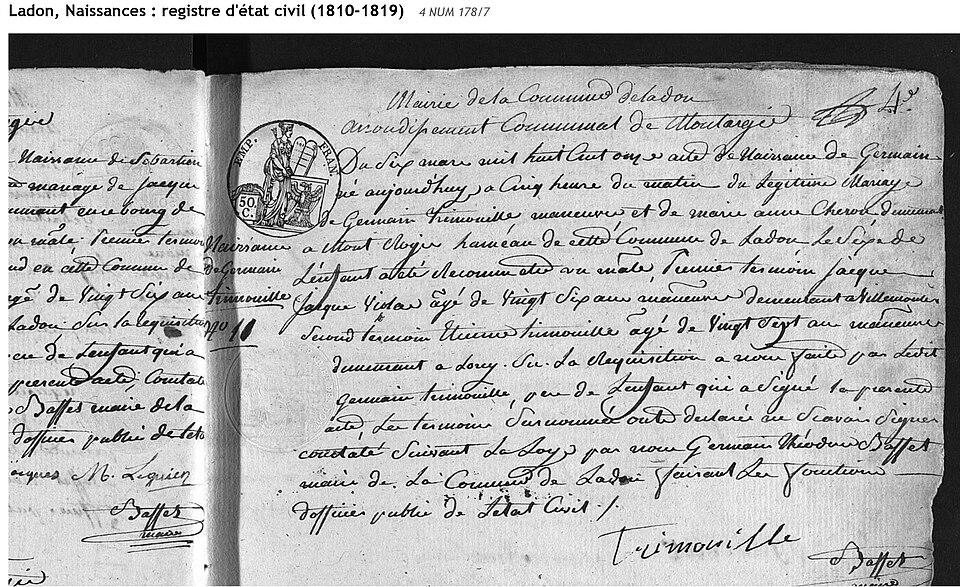 Ladon, Naissances : registre d'état civil (1810-1819) 4 NUM 178/7
Naissance de Sebastien
mariage de jacque
bourg de
male premier temoin
en cette Commune de
agé de Vingt Six an
Ladon Sur la requisition
de Lenfant qui a
presente acte, Constaté
Baffet maire de la
dofficier public de letat
M. Lequien
Baffet
maire
EMP. FRAN.
50. C.
Naissance
de Germain
trimouille
no 11
4e
Mairie de la Commune de ladon
arrondissement Communal de Montargie
Du Six mars mil huit Cent onze acte de Naissance de Germain
né aujourdhuy a Cinq heure du matin du Legitime Mariage
de Germain trimouille maneuvre et de marie anne Cheron demeurant
a Mont Roger haméau de cette Commune de Ladon Le Sexe de
Lenfant a eté Reconnu etre un male. Premier termoin jacque
jacque Violae agé de Vingt Six an maneuvre demeurant a Villemoutier
Second termoin Etienne trimouille agé de Vingt Sept an maneuvre
demeurant a Lorcy. Sur La Requisition a nous faite par Ledit
germain trimouille, pere de Lenfant qui a Signé la presente
acte, Les termoins Surnommé onte declarée ne Scavoir Signer
constaté Suivant La Loye par nous Germain théodore Baffet
maire de La Commune de Ladon faisant Les fonctions
dofficier public de Letat Civil ./.
Trimouille
Baffet